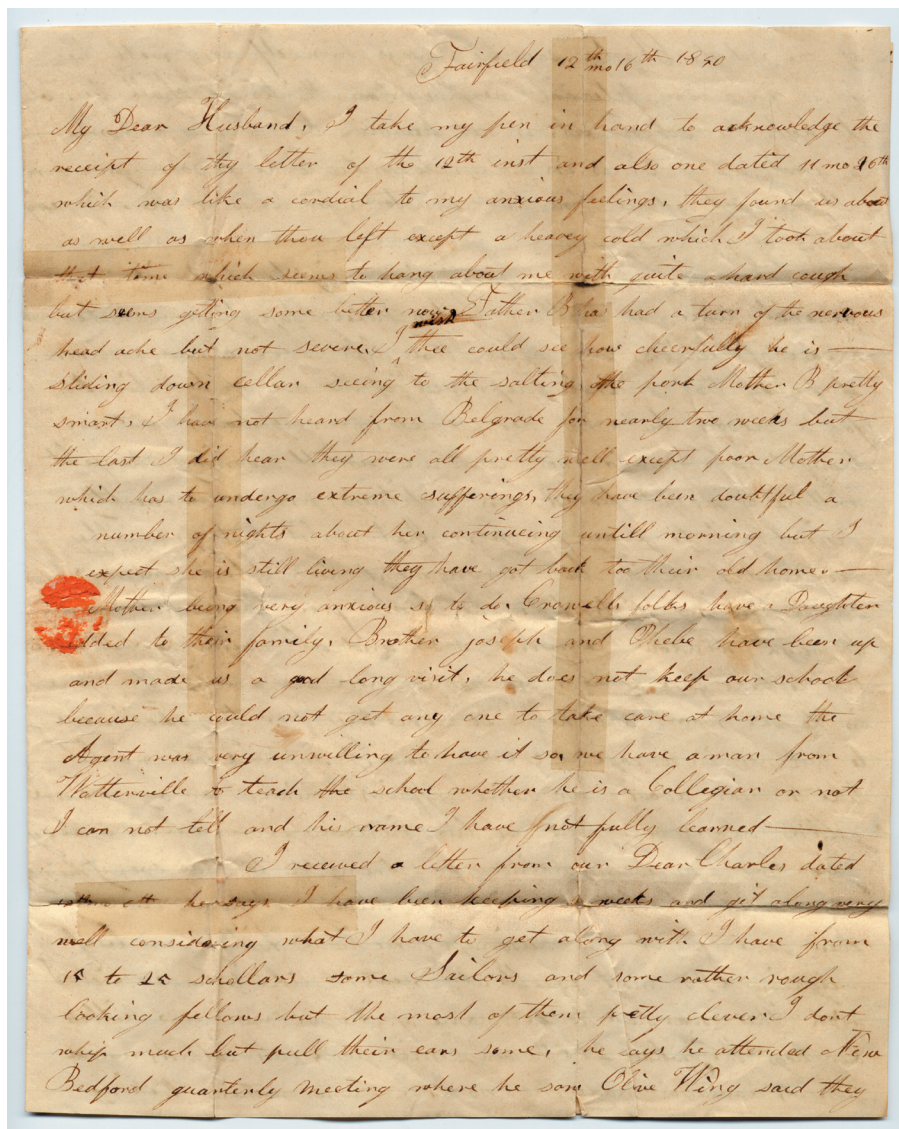 Fairfield 12th mo 16th 1840
My Dear Husband, I take my pen in hand to acknowledge the
receipt of thy letter of the 12th inst and also one dated 11 mo 26th
which was like a cordial to my anxious feelings, they found us about
as well as when thou left except a heavey cold which I took about
that time which seems to hang about me with quite a hard cough
but seems getting some better now. Father B has had a turn of the nervous
head ache but not severe. I wish thee could see how cheerfully he is —
sliding down cellar seeing to the salting the pork Mother B pretty
smart, I have not heard from Belgrade for nearly two weeks but
the last I did hear they were all pretty well except poor Mother
which has to undergo extreme sufferings, they have been doubtful a
number of nights about her continueing untill morning but I
expect she is still living they have got back too their old home. —
Mother being very anxious so to do. Crowells folks have a Daughter
added to their family. Brother joseph and Phebe have been up
and made us a good long visit, he does not keep our school
because he could not get any one to take care at home the
Agent was very unwilling to have it so, we have a man from
Watterville to teach the school whether he is a Collegian or not
I can not tell and his name I have not fully learned —
I received a letter from our Dear Charles dated
he says I have been keeping weeks and git along very
well considering what I have to get along with I have from
15 to 25 schollars some Sailors and some rather rough
looking fellows but the most of them pretty clever I dont
whip much but pull their ears some, he says he attended New
Bedford quarterly meeting where he saw Olive Wing said they